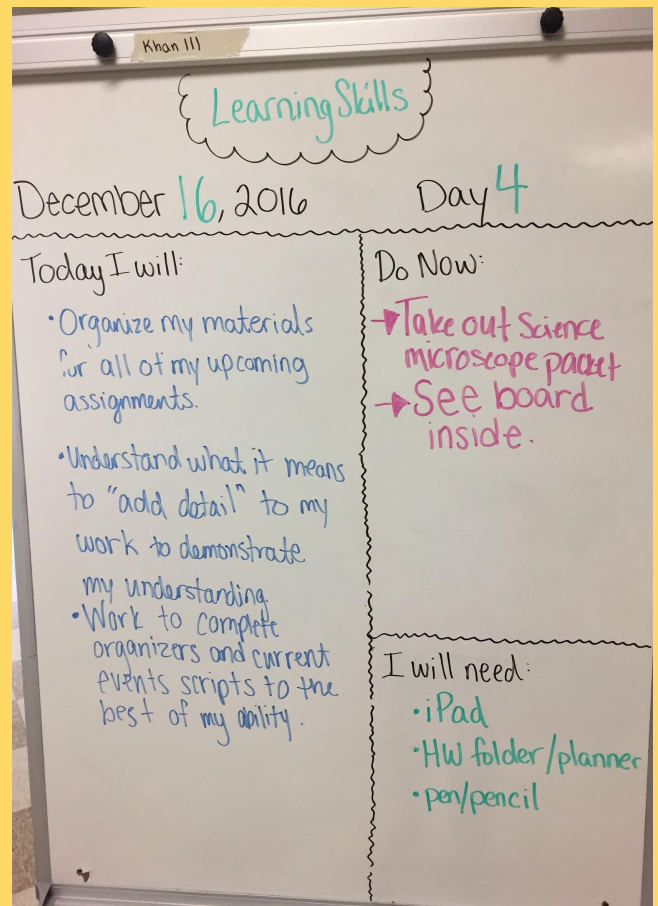 Khan III
Learning Skills
December 16, 2016
Day 4
Today I will:
•Organize my materials
for all of my upcoming
assignments.
•Understand what it means
to "add detail" to my
work to demonstrate
my understanding.
•Work to complete
organizers and current
events scripts to the
best of my ability.
Do Now:
→Take out Science
microscope packet
→See board
inside.
I will need:
•iPad
•HW folder/planner
•pen/pencil